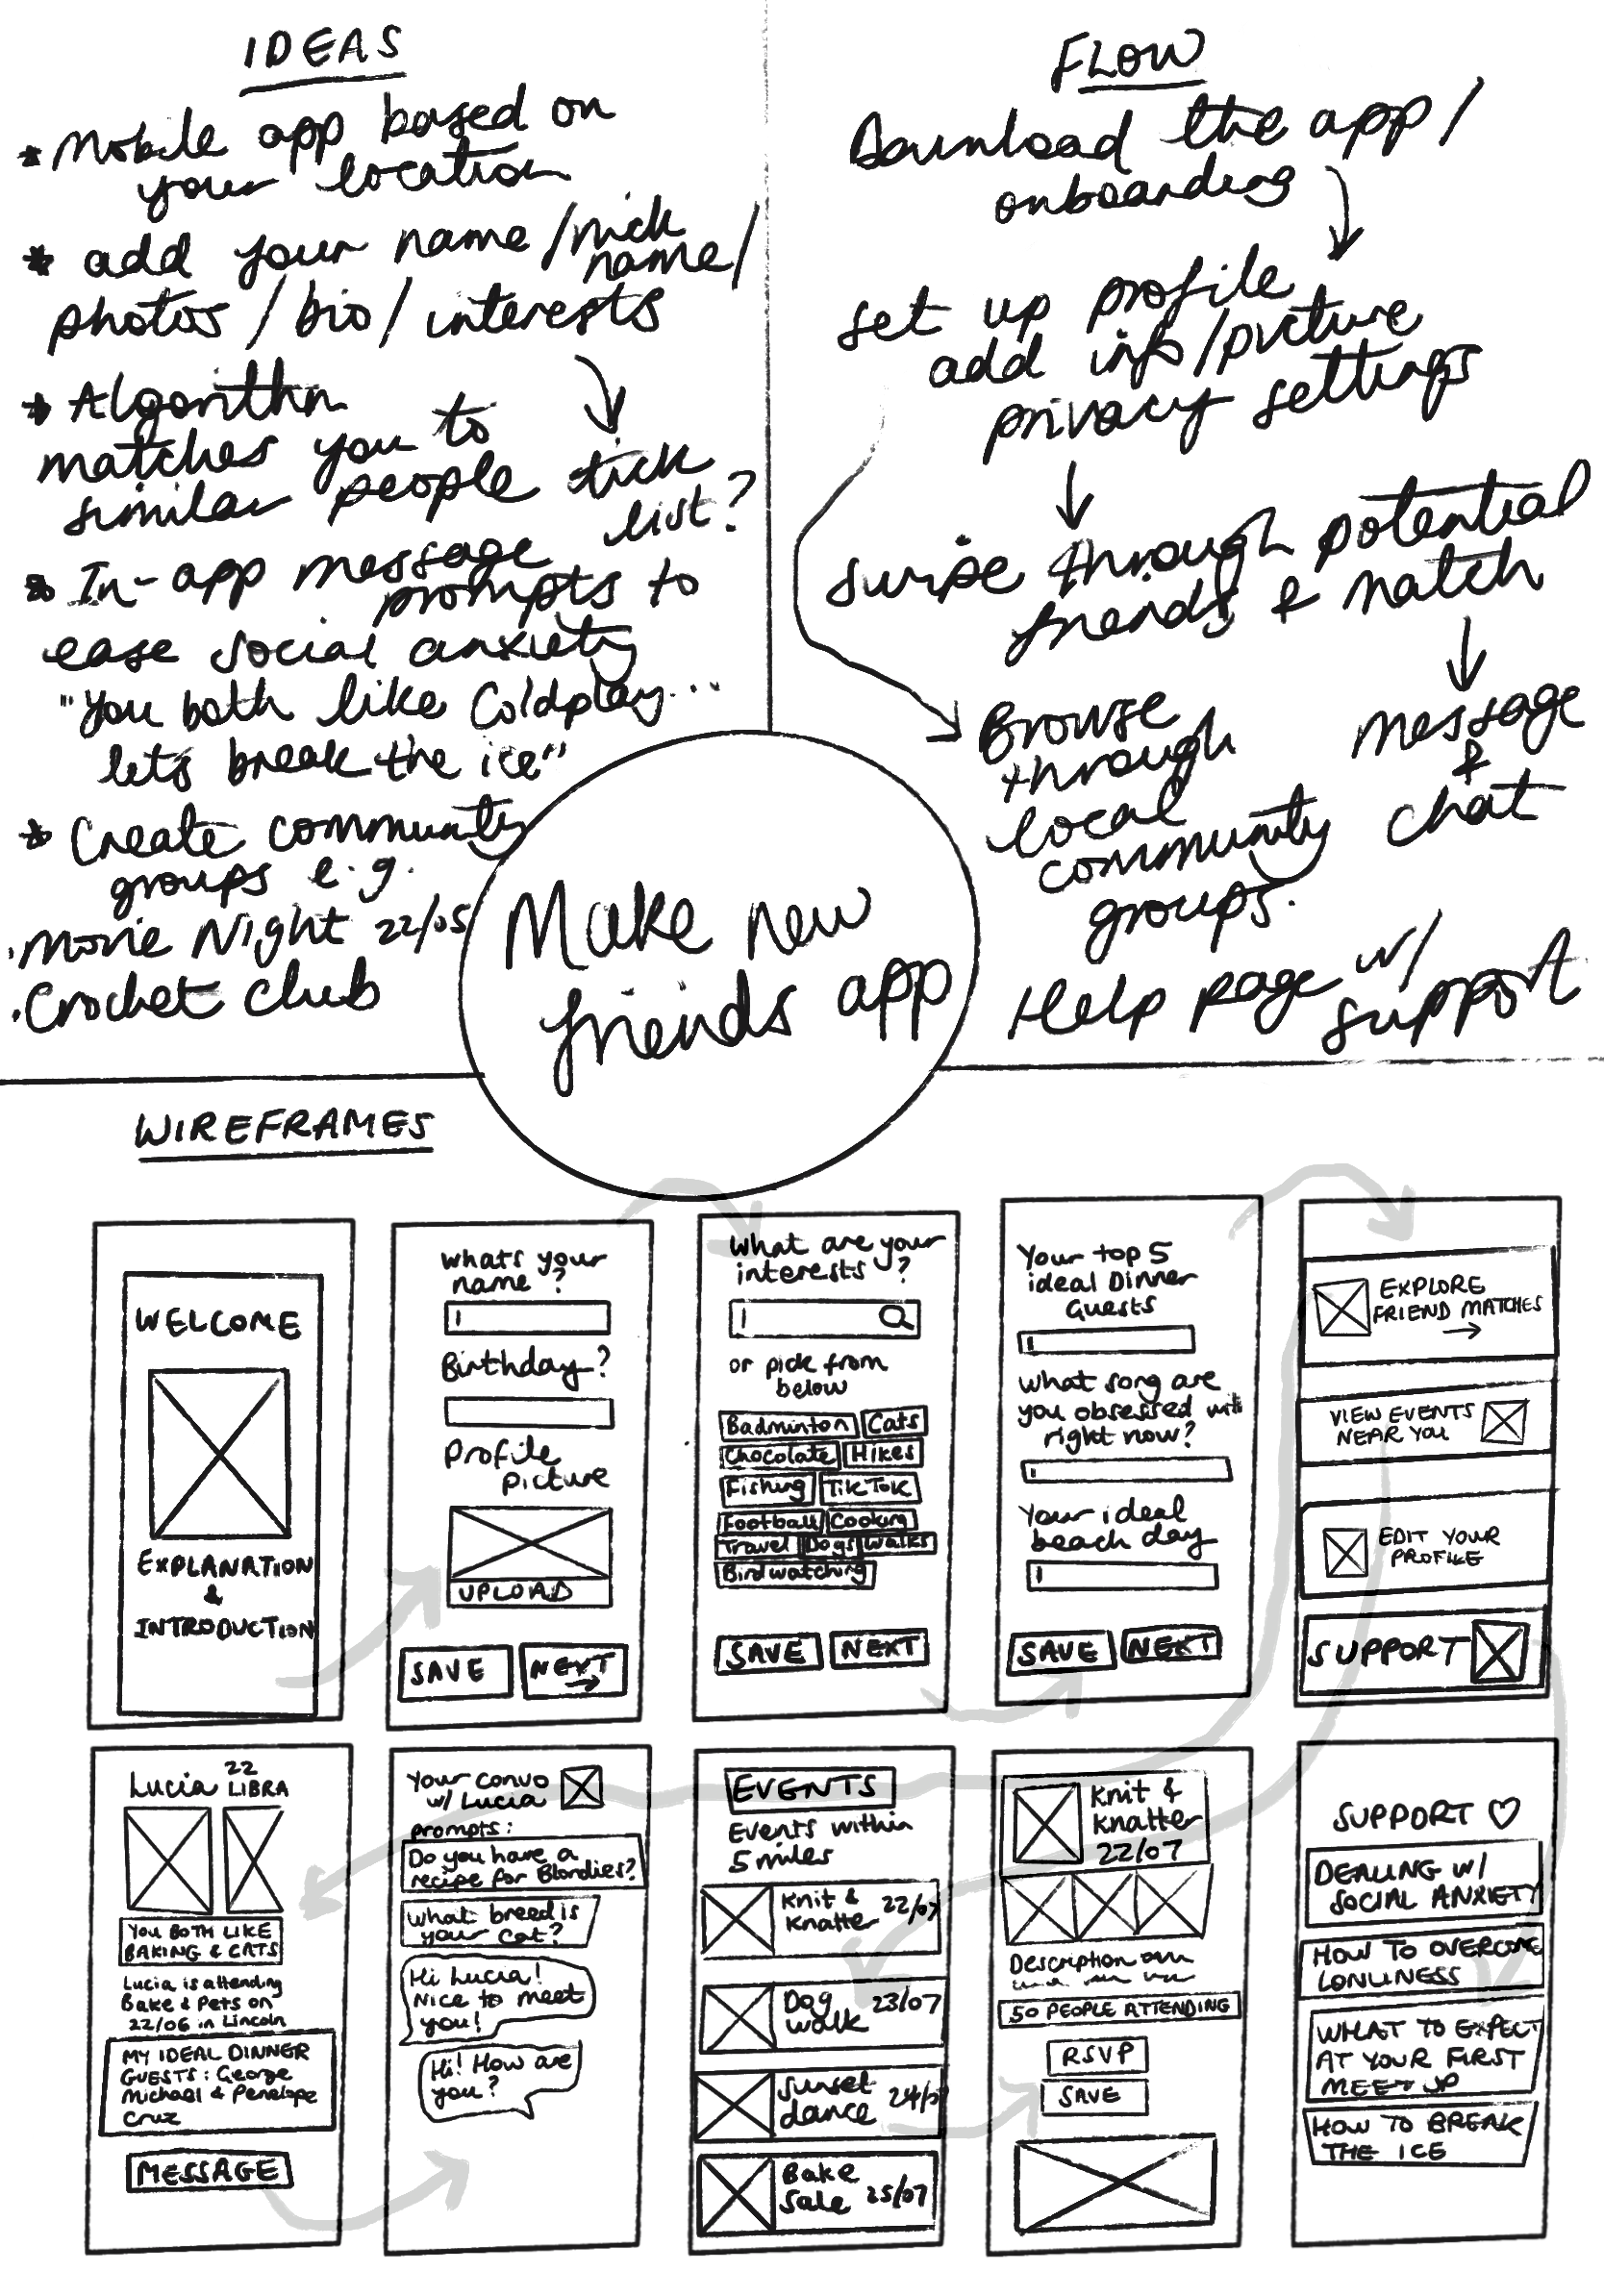 IDEAS
* Mobile app based on
your location
* add your name/nick
name/
photos/bio/interests
* Algorithm
matches you to
similar people tick
list?
* In-app message
prompts to
ease social anxiety
"You both like Coldplay...
lets break the ice"
* Create community
groups e.g.
. Movie Night 22/05
. Crochet club
FLOW
Download the app/
onboarding
set up profile
add info/picture
privacy settings
swipe through potential
friends & match
Browse
through
local
community
groups.
message
&
chat
Help page w/
support
Make new
friends app
WIREFRAMES
WELCOME
EXPLANATION
&
INTRODUCTION
whats your
name?
Birthday?
Profile
picture
UPLOAD
SAVE
NEXT
What are your
interests?
or pick from
below
Badminton Cats
Chocolate Hikes
Fishing TikTok
Football Cooking
Travel Dogs Walks
Birdwatching
SAVE NEXT
Your top 5
ideal Dinner
Guests
What song are
you obsessed with
right now?
Your ideal
beach day
SAVE NEXT
EXPLORE
FRIEND MATCHES
VIEW EVENTS
NEAR YOU
EDIT YOUR
PROFILE
SUPPORT
Lucia 22
LIBRA
YOU BOTH LIKE
BAKING & CATS
Lucia is attending
Bake & Pets on
22/06 in Lincoln
MY IDEAL DINNER
GUESTS: George
Michael & Penelope
Cruz
MESSAGE
Your convo
w/ Lucia
prompts:
Do you have a
recipe for Blondies?
What breed is
your cat?
Hi Lucia!
Nice to meet
you!
Hi! How are
you?
EVENTS
Events within
5 miles
Knit &
Knatter 22/07
Dog
walk 23/07
Sunset
dance 24/07
Bake
Sale 25/07
Knit &
Knatter
22/07
Description
50 PEOPLE ATTENDING
RSVP
SAVE
SUPPORT ♡
DEALING W/
SOCIAL ANXIETY
HOW TO OVERCOME
LONLINESS
WHAT TO EXPECT
AT YOUR FIRST
MEET UP
HOW TO BREAK
THE ICE